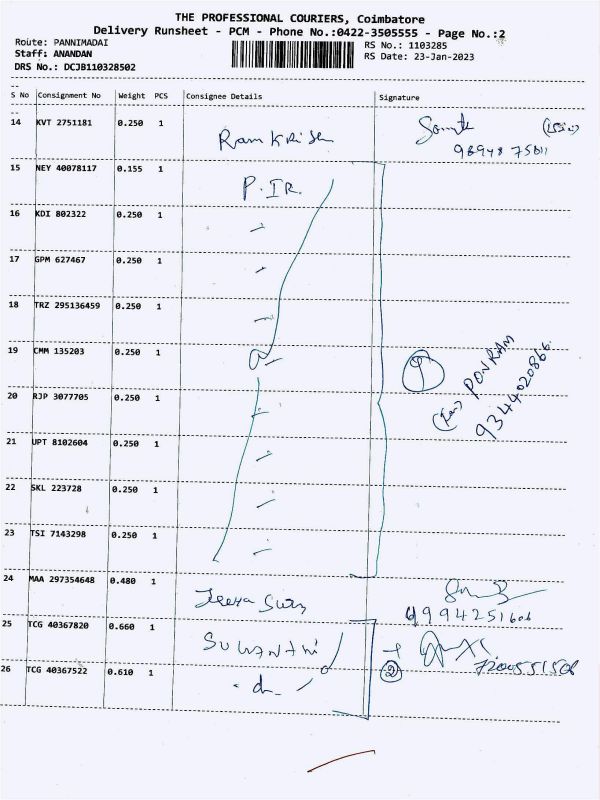 THE PROFESSIONAL COURIERS, Coimbatore
Delivery Runsheet - PCM - Phone No.:0422-3505555 - Page No.:2
Route: PANNIMADAI
RS No.: 1103285
Staff: ANANDAN
RS Date: 23-Jan-2023
DRS No.: DCJB110328502
S No Consignment No Weight PCS Consignee Details Signature
14 KVT 2751181 0.250 1
15 NEY 40078117 0.155 1 P. IR.
16 KDI 802322 0.250 1
17 GPM 627467 0.250 1
18 TRZ 295136459 0.250 1
19 CMM 135203 0.250 1 9 PONRAM
9344020866
20 RJP 3077705 0.250 1
21 UPT 8102604 0.250 1
22 SKL 223728 0.250 1
23 TSI 7143298 0.250 1
24 MAA 297354648 0.480 1
25 TCG 40367820 0.660 1
26 TCG 40367522 0.610 1 2 7200551508